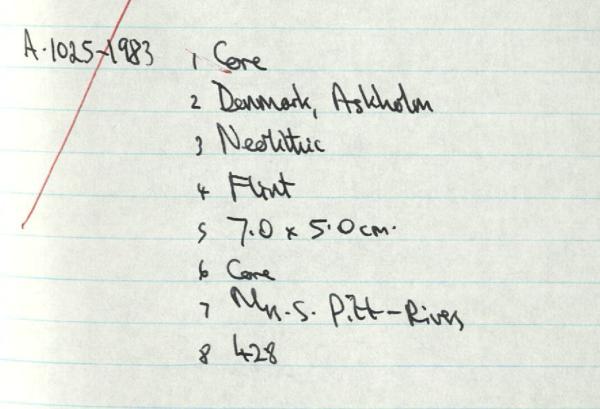 A.1025-1983 1 Core
2 Denmark, Askholm
3 Neolithic
4 Flint
5 7.0 x 5.0 cm.
6 Core
7 Mrs. S. Pitt-Rivers
8 428